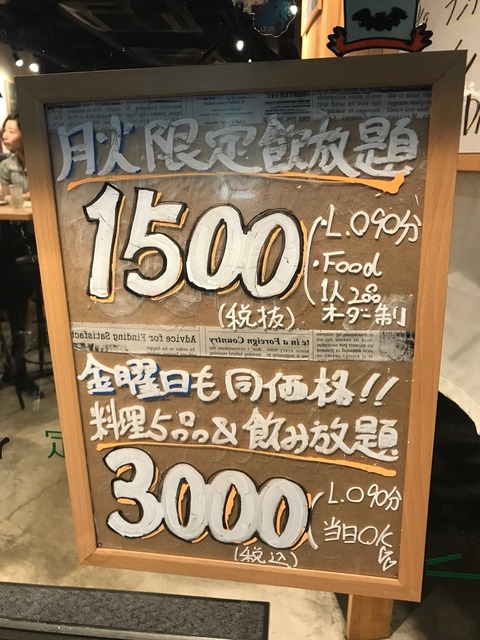 月火限定飲放題
1500
(税抜)
・L.O90分
・Food
1人2品
オーダー制
Advice for Finding Satisfact
te in a Foreign Country
金曜日も同価格!!
料理5品&飲み放題
3000
(税込)
L.O90分
当日OK